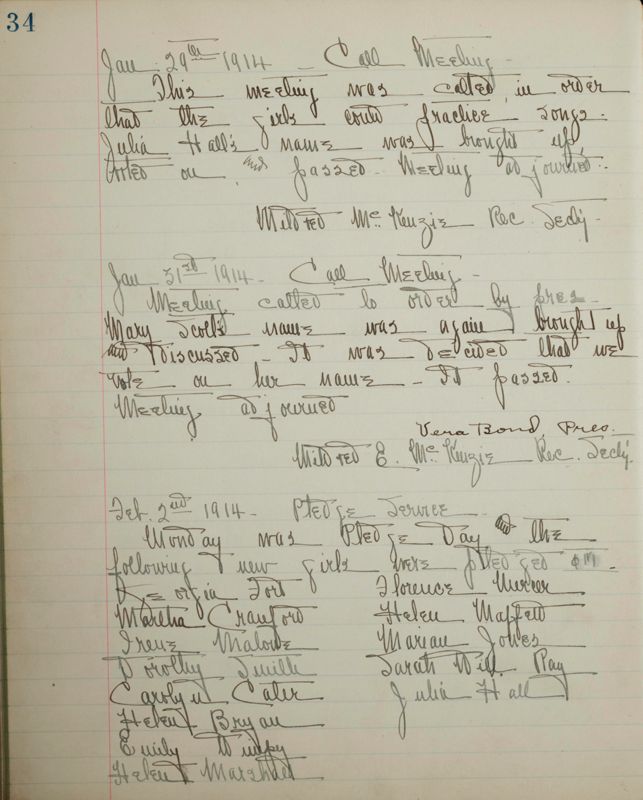 34
Jan. 29th 1914 - Call Meeting -
This meeting was called in order
that the girls could practice songs.
Julia Hall's name was brought up
voted on and passed. Meeting adjourned.
Mildred McKenzie Rec. Sec'y.
Jan 31st 1914 - Call Meeting -
Meeting called to order by pres.
Mary Scott's name was again brought up
and discussed - It was decided that we
vote on her name - It passed.
Meeting adjourned
Vera Bond Pres.
Mildred E. McKenzie Rec. Sec'y
Feb. 2nd 1914 - Pledge Service
Monday was Pledge Day and the
following new girls were pledged ΦM.
Georgia Fort Florence Mercer
Martha Crawford Helen Maffett
Irene Malone Marian Jones
Dorothy Marian Sarah Will Ray
Carolyn Cater Julia Hall
Helen Bryan
Emily
Helen Marshall